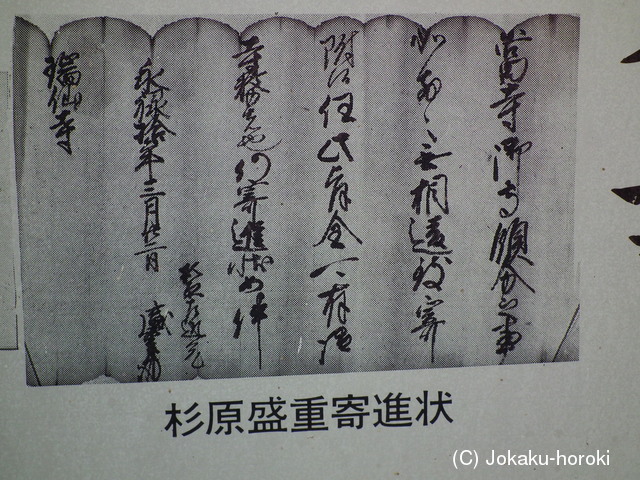 當寺御寺領分之事
如前々無相違致寄
附候任此旨全可有
寺務者也仍寄進状如件
杉原
盛重
永禄拾年三月
瑞仙寺
杉原盛重寄進状
(C) Jokaku-horoki